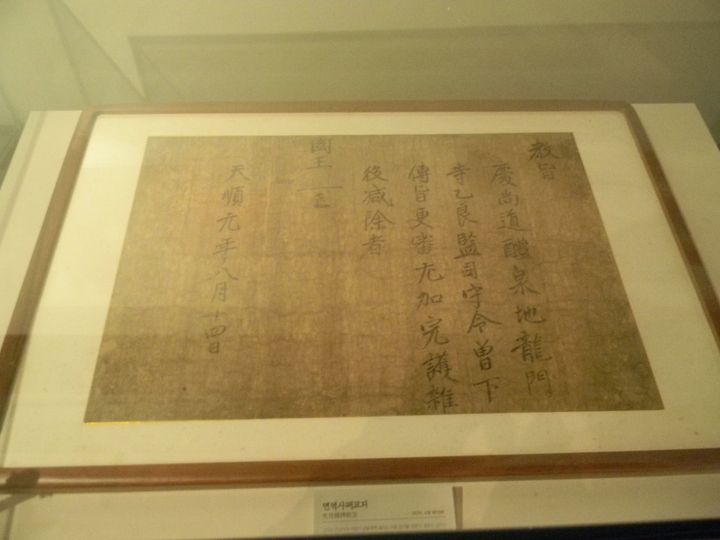 教旨
慶尚道醴泉地龍門
寺乙良監司守令曾下
傳旨更審尤加完護雜
役減除者
國王
天順元年八月十四日
면역사패교지